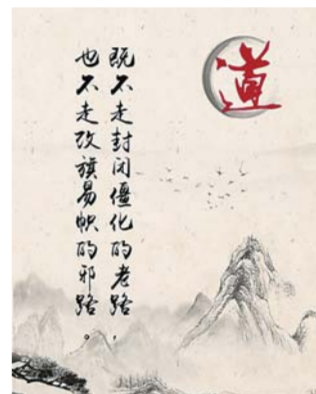 道
既不走封闭僵化的老路，
也不走改旗易帜的邪路。